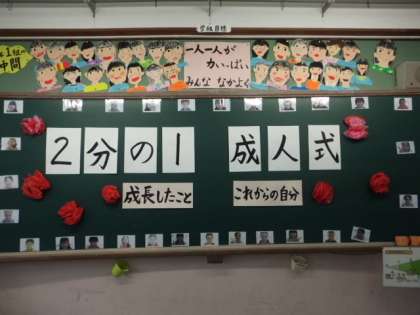 学級目標
一人一人が
力いっぱい
みんな なかよく
1組の
仲間
2分の1 成人式
成長したこと
これからの自分